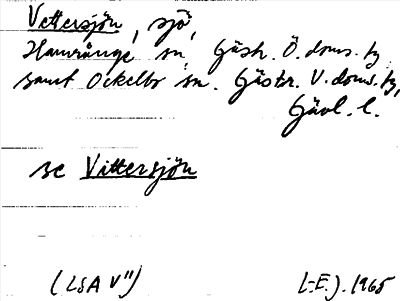 Vettersjön, sjö,
Hamrånge sn, Gästr. Ö. doms. tg
samt Ockelbo sn. Gästr. V. doms. tg,
Gävl. l.
se Vittersjön
(LSA V") L-E.J. 1965